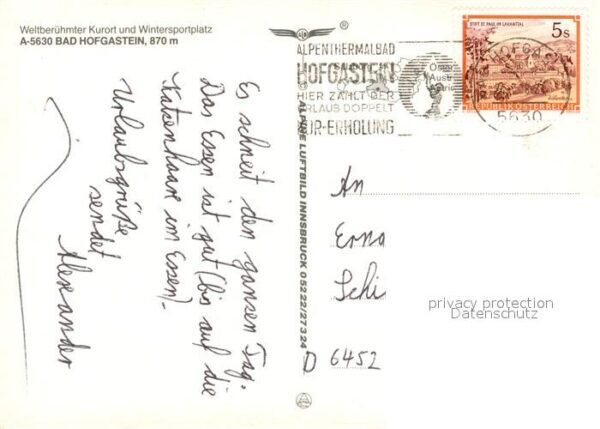 Weltberühmter Kurort und Wintersportplatz
A-5630 BAD HOFGASTEIN, 870 m
Es schneit den ganzen Tag.
Das Essen ist gut (bis auf die
Katzenhaare im Essen).
Urlaubsgrüße
sendet
Alexander
ALPINE LUFTBILD INNSBRUCK 05222/27324
ALPENTHERMALBAD
HOFGASTEIN
HIER ZÄHLT DER
URLAUB DOPPELT
KUR-ERHOLUNG
STIFT ST. PAUL IM LAVANTTAL
5s
REPUBLIK ÖSTERREICH
HOFGAST
5630
An
Erna
Schi
D 6452
privacy protection
Datenschutz